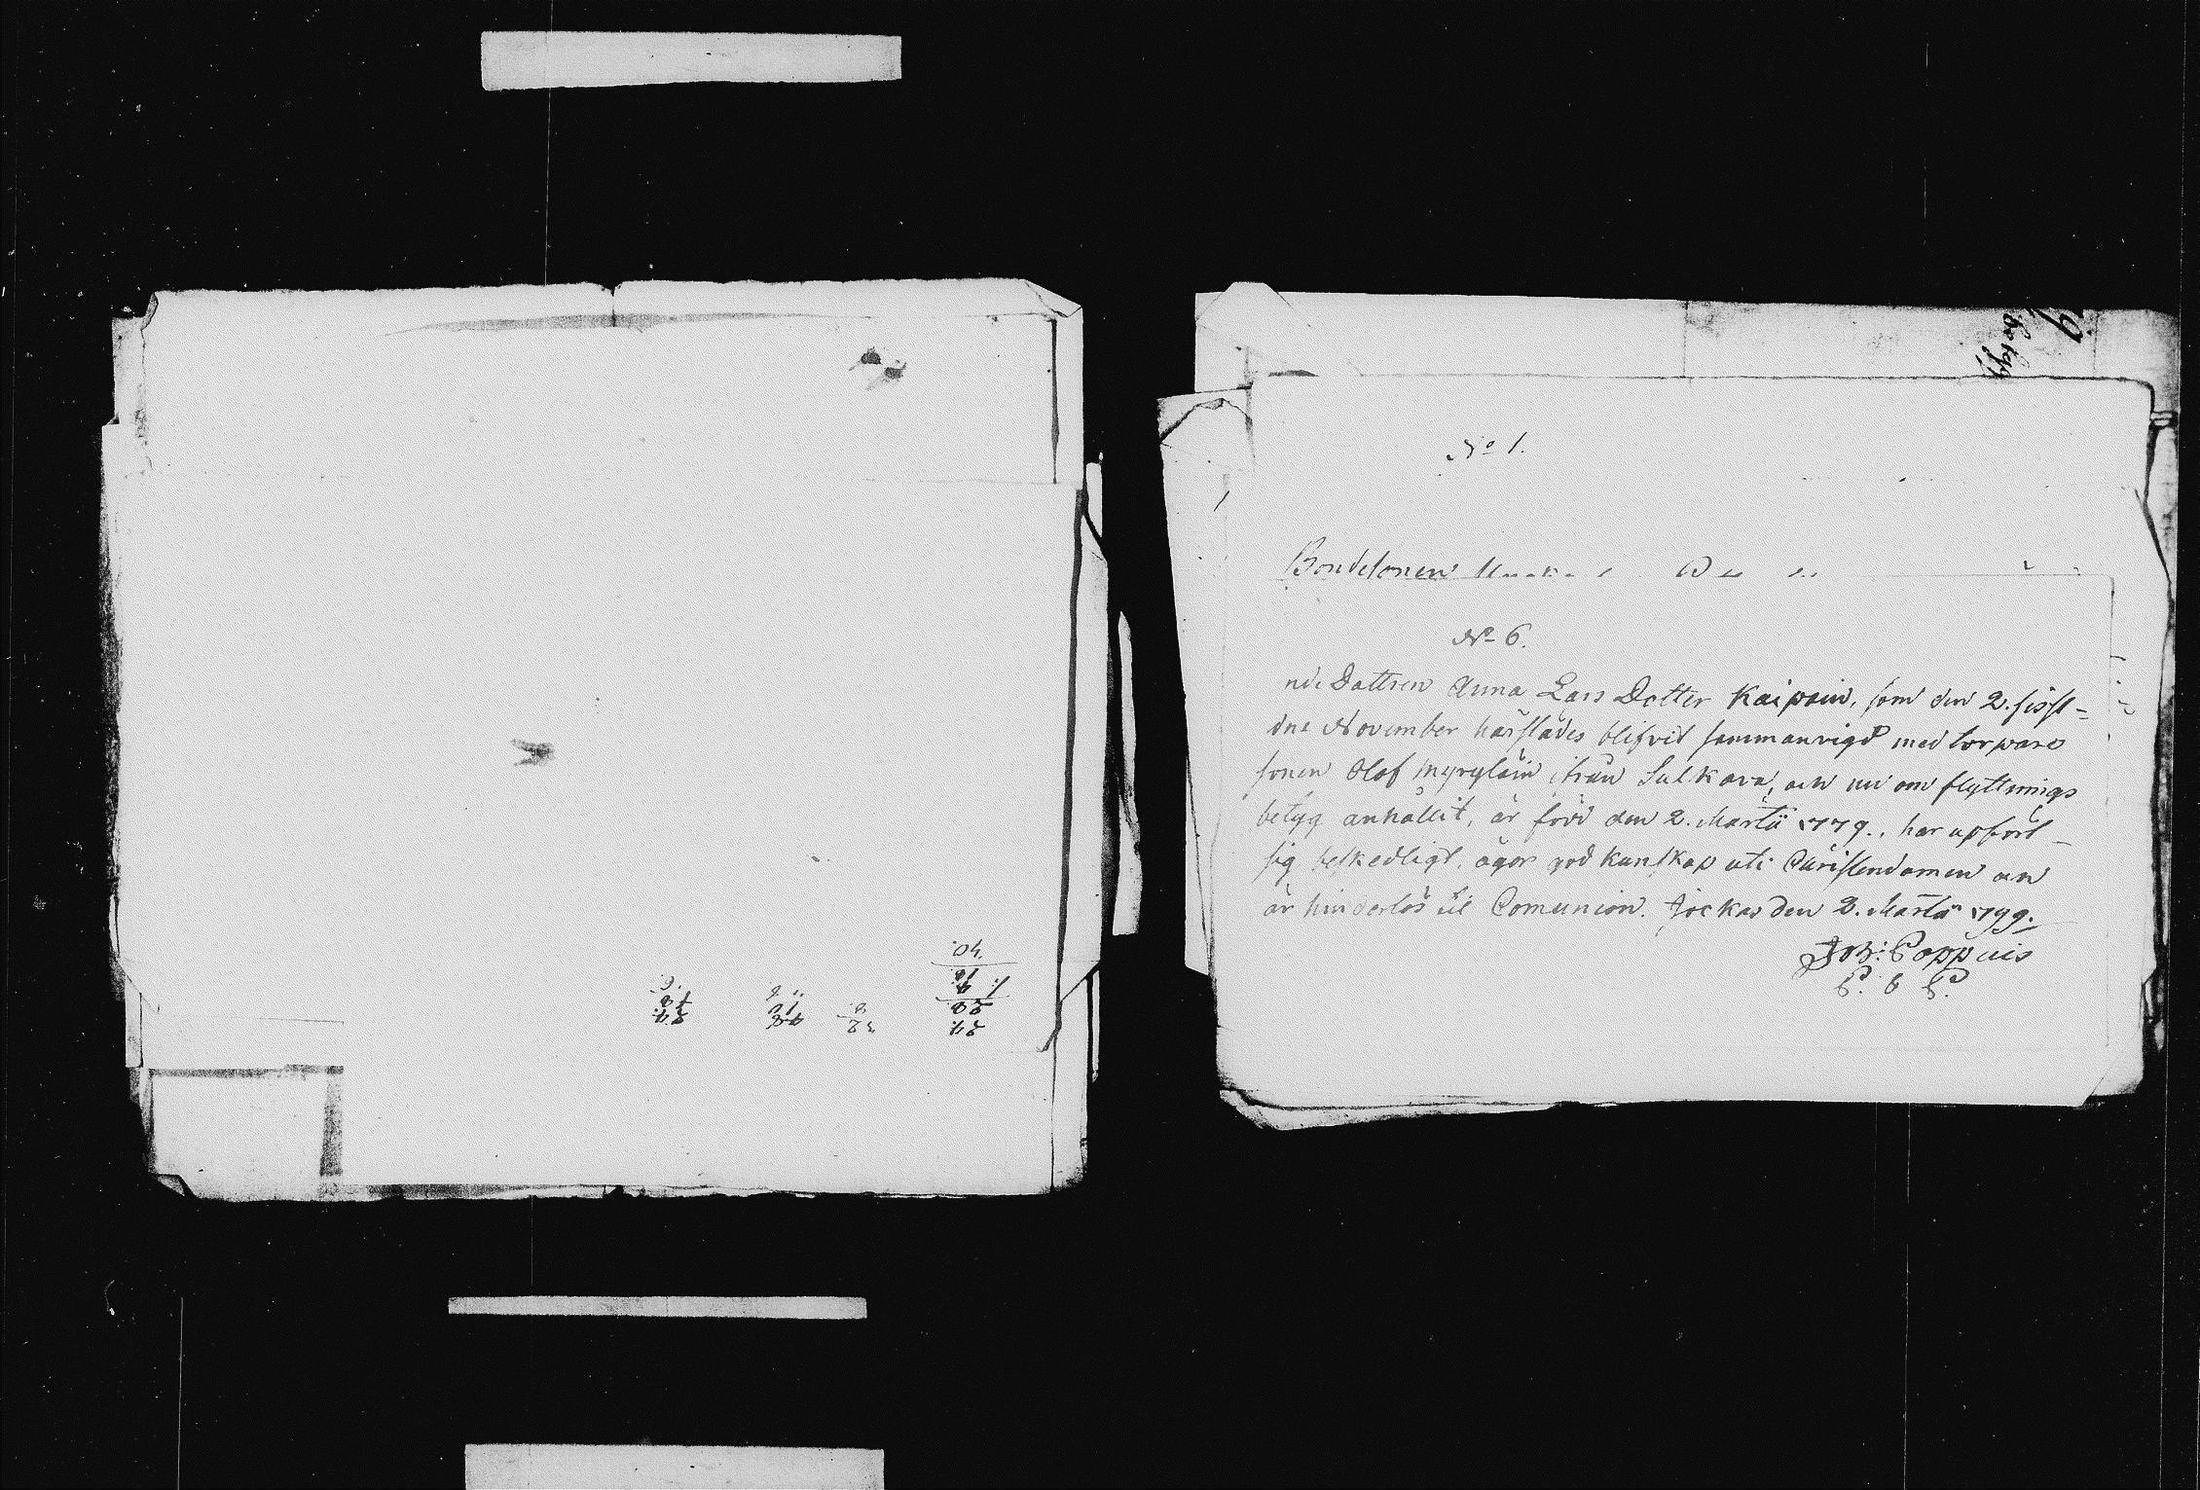 betyg
No 1.
Bondesonen
No 6.
nde Dottren Anna Lars Dotter Kaipain, som den 2. sisst=
dne November härstädes blifvit sammanvigd med torpare
sonen Olof Myryläin ifrån Sulkava, och nu om flyttnings
betyg anhållit, är född den 2. Martii 1779., har upfört
sig beskedligt, äger god kunskap uti Christendomen och
är hinderlös til Comunion. Jockas den 2. Martii 1799.
Joh: Poppius
24.
20
1. 4.
16.
40.
32
8.
48
12
24.
18
6.